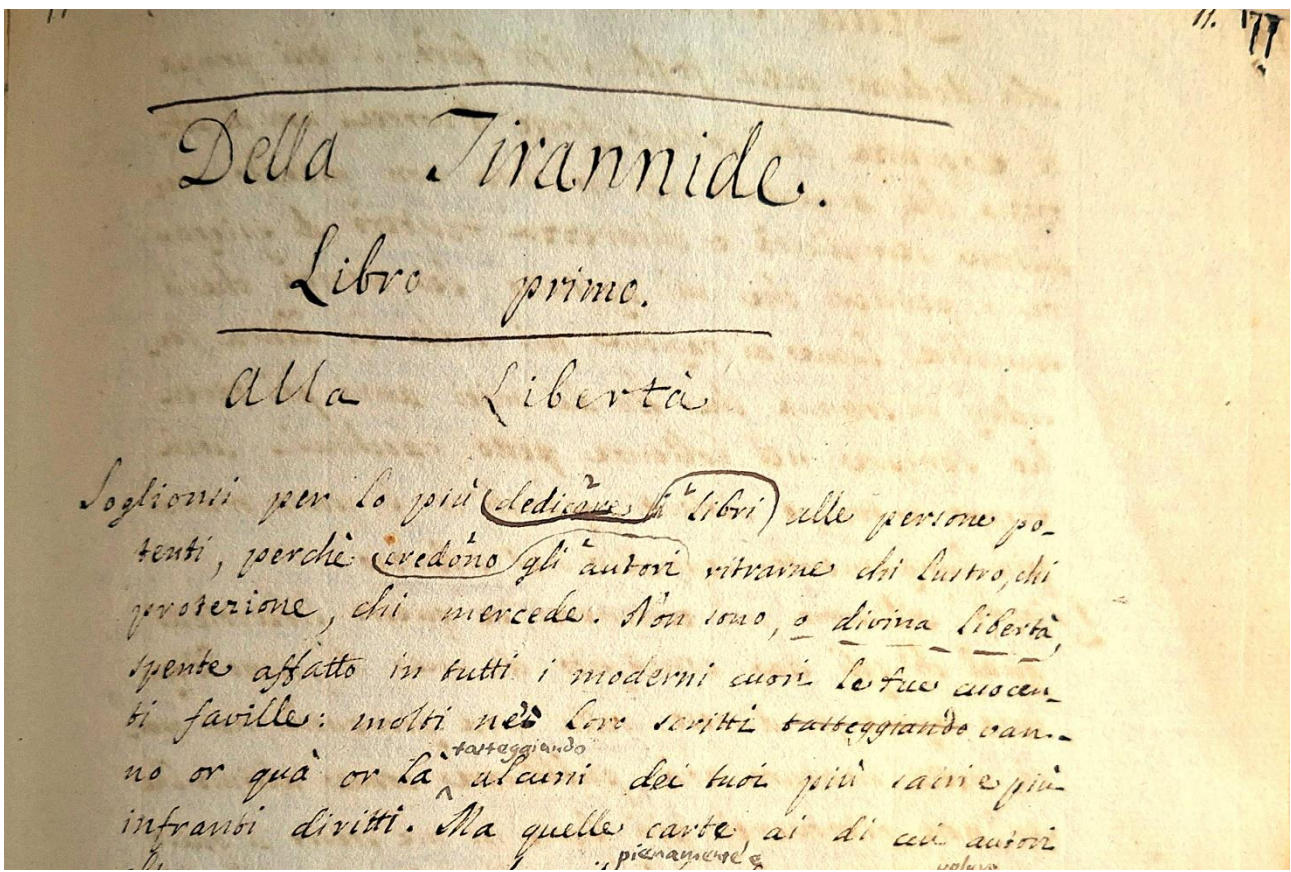 11. 177
Della Tirannide.
Libro primo.
Alla Libertà
Soglionsi per lo più dedicare i libri alle persone po-
tenti, perchè credono gli autori ritrarne chi lustro, chi
protezione, chi mercede. Non sono, o divina libertà,
spente affatto in tutti i moderni cuori le tue cuocen-
ti faville: molti nei loro scritti tasteggiando van-
tasteggiando
no or quà or là alcuni dei tuoi più sacri e più
infranti diritti. Ma quelle carte, ai di cui autori
pienamente, e